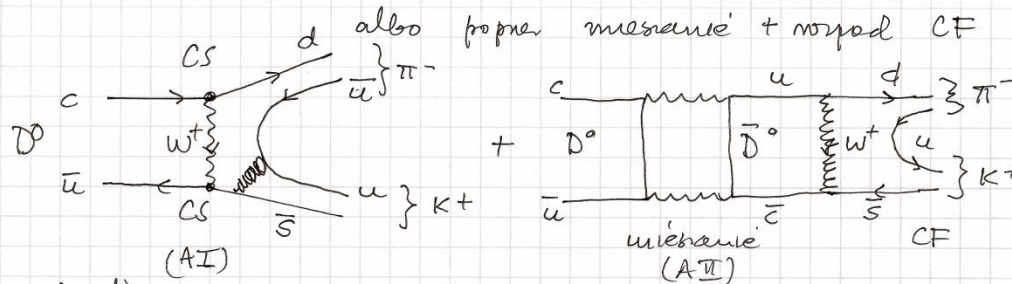 albo poprzez mieszanie + rozpad CF
CS d
ū } π⁻
c
D⁰ W⁺
ū
CS
s̄
u } K+
(AI)
+
c u d
} π⁻
D⁰ D̄⁰ W⁺ u
} K+
ū c̄ s̄
mieszanie CF
(AII)